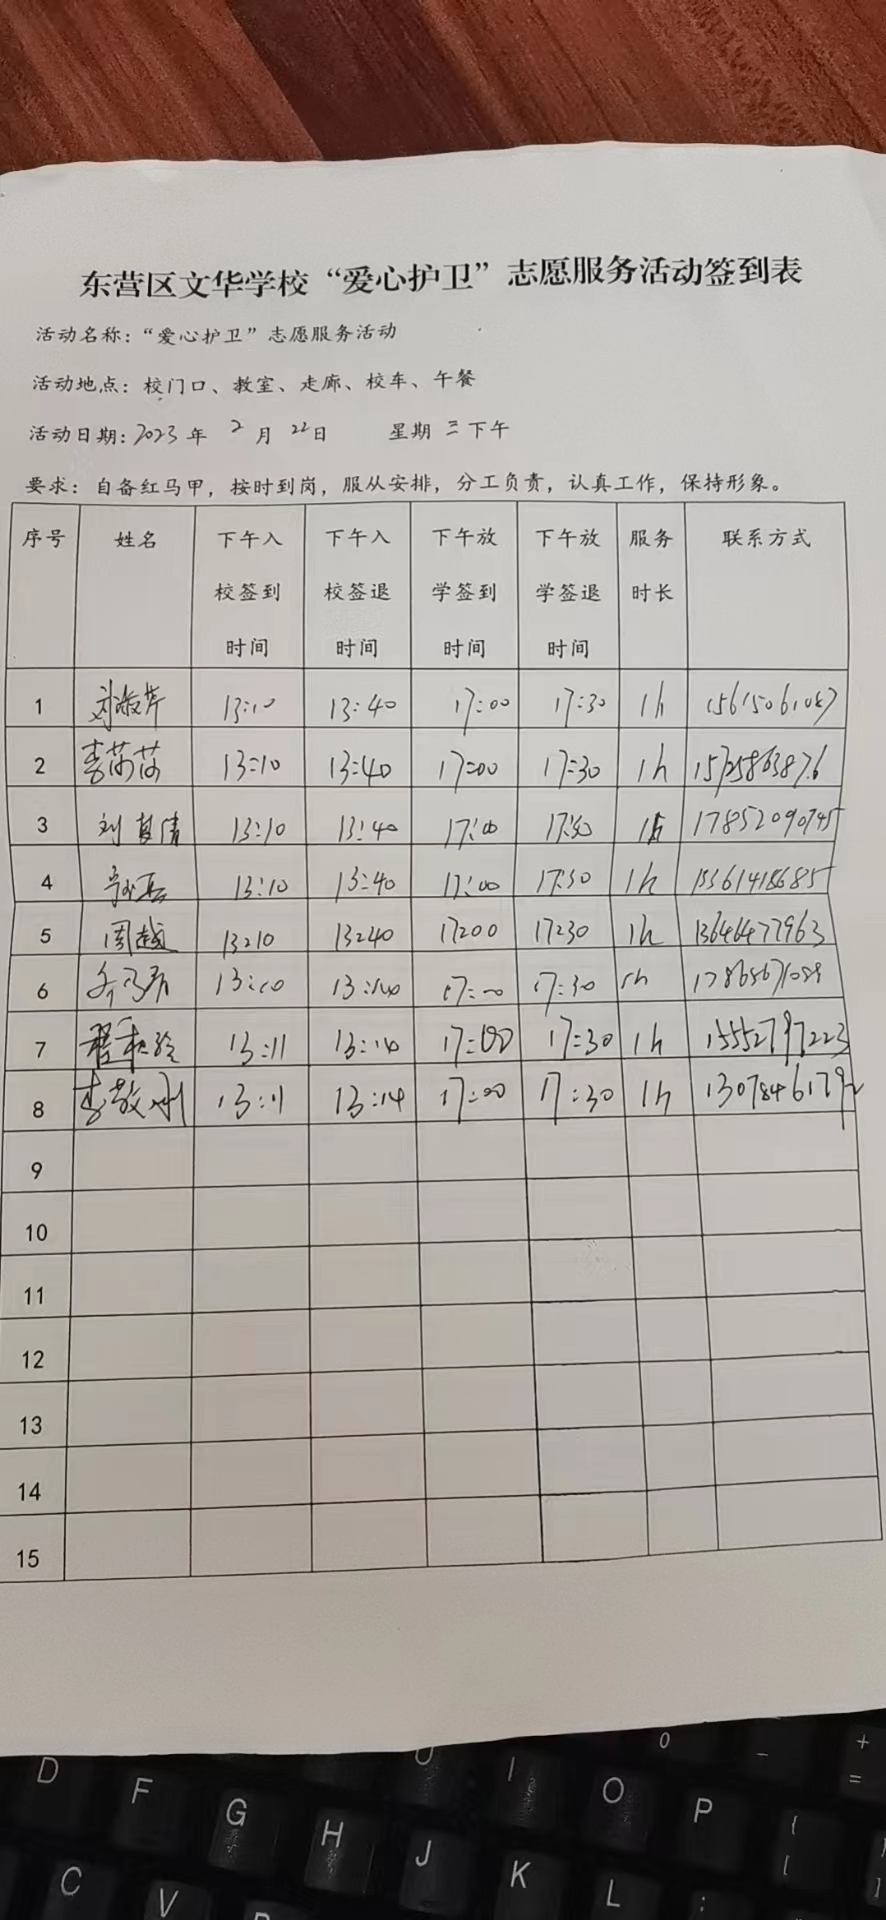 东营区文华学校“爱心护卫”志愿服务活动签到表
活动名称：“爱心护卫”志愿服务活动
活动地点：校门口、教室、走廊、校车、午餐
活动日期：2023年 2 月 22日 星期 三 下午
要求：自备红马甲，按时到岗，服从安排，分工负责，认真工作，保持形象。
序号 姓名 下午入校签到时间 下午入校签退时间 下午放学签到时间 下午放学签退时间 服务时长 联系方式
1 刘淑芹 13:10 13:40 17:00 17:30 1h 15615061087
2 李茵茵 13:10 13:40 17:00 17:30 1h
3 13:10 13:40 17:00 17:30 1h 17852090745
4 13:10 13:40 17:00 17:30 1h 15361418685
5 周越 13:10 13:40 17:00 17:30 1h 13646477963
6 13:10 13:40 17:00 17:30 1h
7 13:11 13:14 17:00 17:30 1h 15552797223
8 13:11 13:14 17:00 17:30 1h 13078461792
9
10
11
12
13
14
15
D
F
G
H
J
K
L
:
U
I
O
P
0
_
-
+
=
{
[
C
V